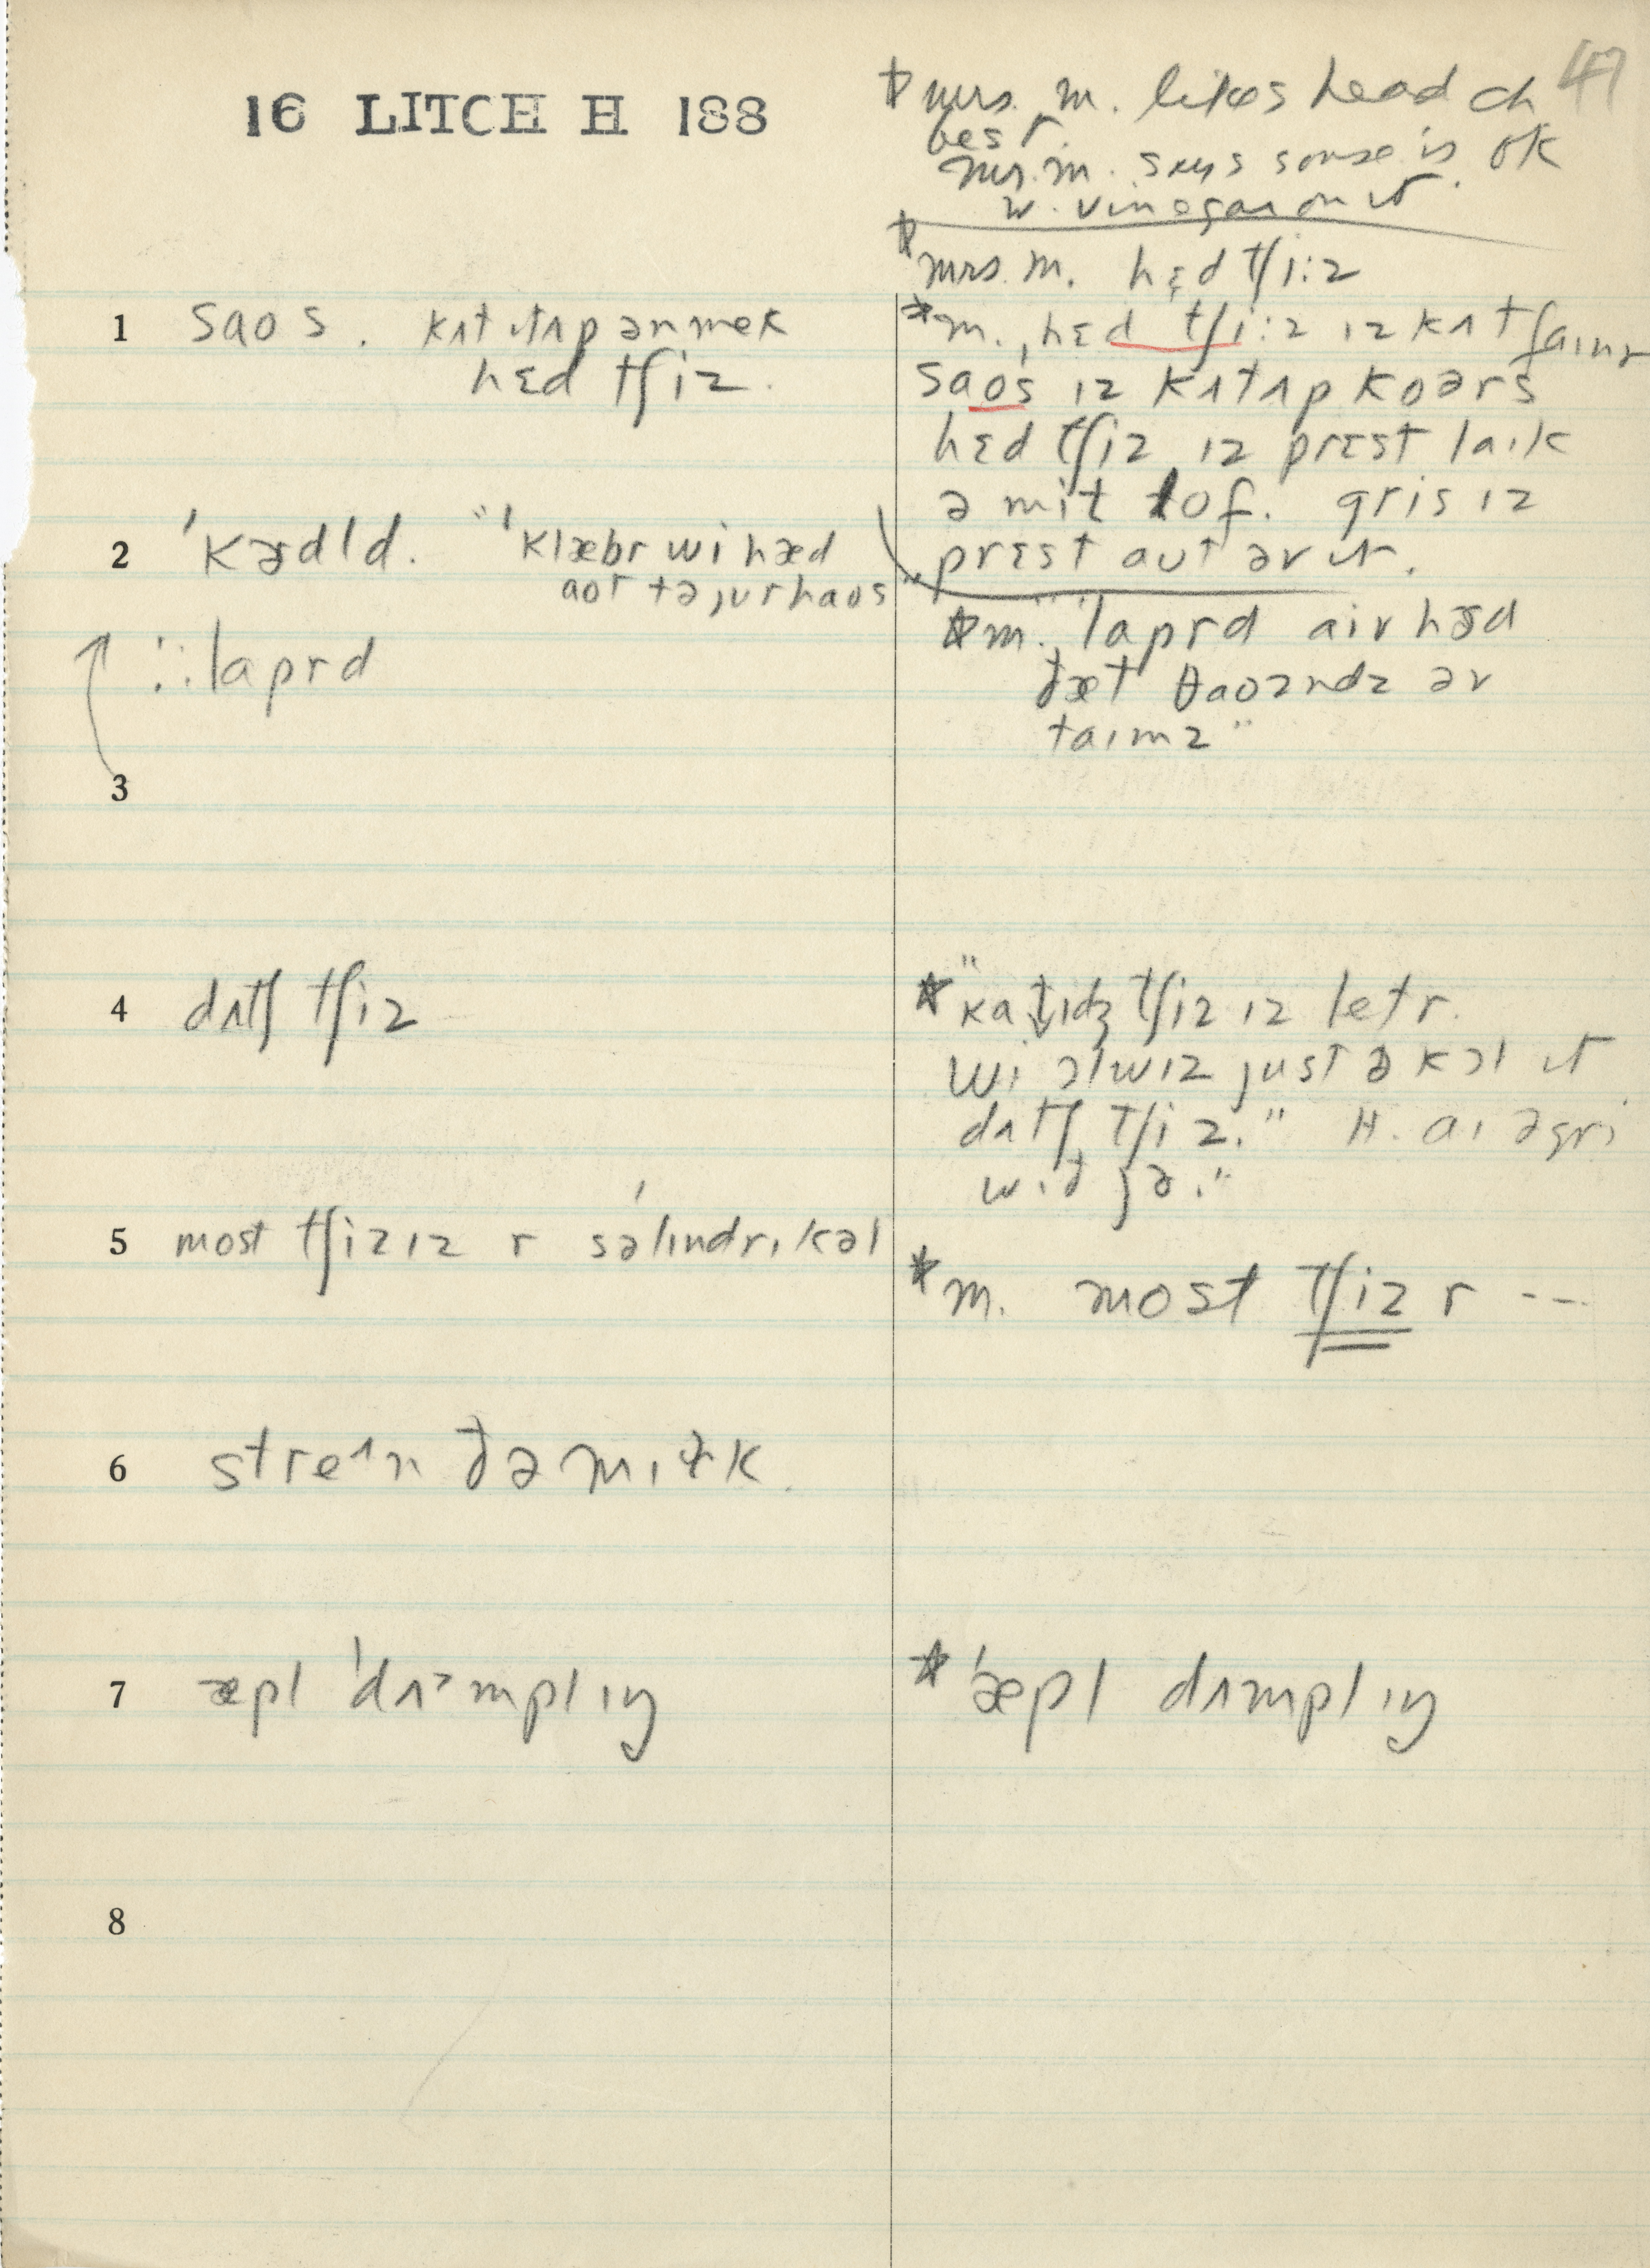 47
16 LITCH H 188
* mrs. m. likes head ch
best
mr. m. says souse is ok
w. vinegar on it.
* mrs. m. hɛd tʃi:z
1 saos. kʌt ɪt ʌp ən mek
hɛd tʃiz.
* m. hɛd tʃi:z ɪz kʌt faɪnr
saos ɪz kʌt ʌp koərs
hɛd tʃiz ɪz prɛst laɪk
ə mit lof. gris ɪz
prɛst aʊt əv ɪt.
2 'kɜdld. "'klæbr wi hæd
aot tə jʊr haos"
:. lɑprd
* m. "lɑprd aiv hɜd
ðæt θaozndz əv
taɪmz"
3
4 dʌtʃ tʃiz
* "kɑtɪdʒ tʃiz ɪz letr.
wi ɔlwɪz just ə kɔl ɪt
dʌtʃ tʃiz." H. aɪ əgri
wɪð jə."
5 most tʃizɪz r səlɪndrɪkəl
* m. most tʃiz r ---
6 streɪn ðə mɪɫk.
7 æpl 'dʌᵊmplɪŋ
* 'æpl dʌmplɪŋ
8